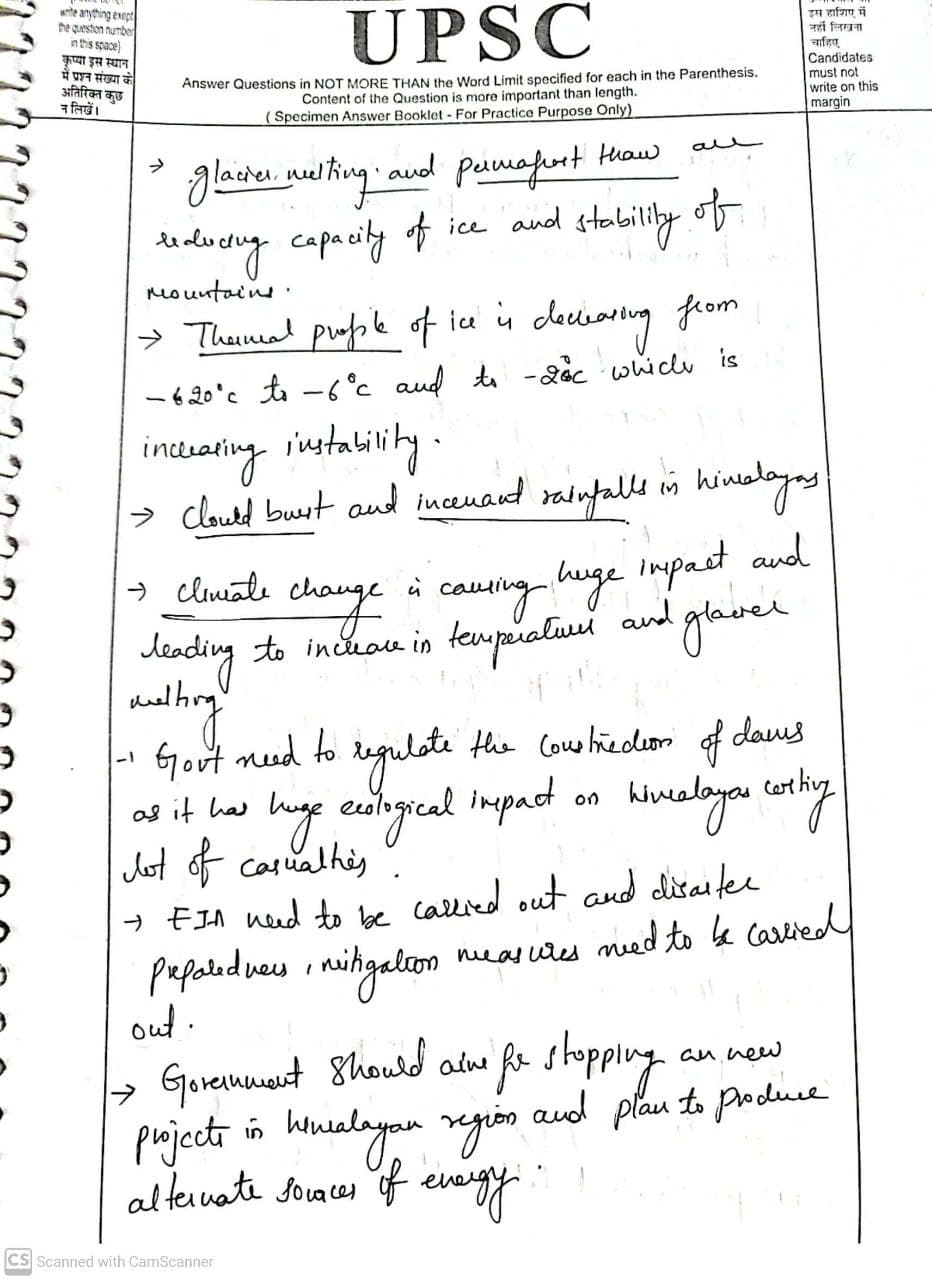 write anything exept
the question number
in this space)
कृप्या इस स्थान
में प्रश्न संख्या के
अतिरिक्त कुछ
न लिखें।
UPSC
Answer Questions in NOT MORE THAN the Word Limit specified for each in the Parenthesis.
Content of the Question is more important than length.
( Specimen Answer Booklet - For Practice Purpose Only)
इस हाशिए में
नहीं लिखना
चाहिए
Candidates
must not
write on this
margin
→ glacier melting and permafrost thaw are
reducing capacity of ice and stability of
mountains.
→ Thermal profile of ice is decreasing from
-20°c to -6°c and to -2°c which is
increasing instability.
→ Clould burst and incessant rainfalls in himalayas
→ climate change is causing huge impact and
leading to increase in temperatures and glacier
melting
→ Govt need to regulate the construction of dams
as it has huge ecological impact on himalayas costing
lot of casualties.
→ EIA need to be carried out and disaster
preparedness, mitigation measures need to be carried
out.
→ Government should aim for stopping an new
projects in himalayan region and plan to produce
alternate sources of energy.
CS Scanned with CamScanner